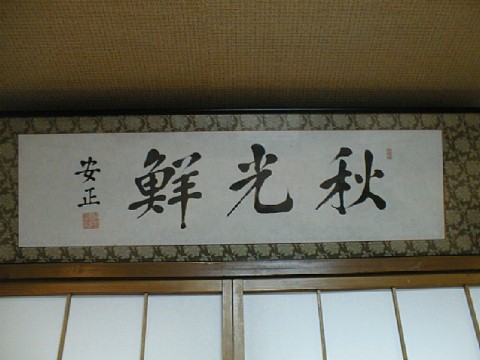 秋光鮮
安正